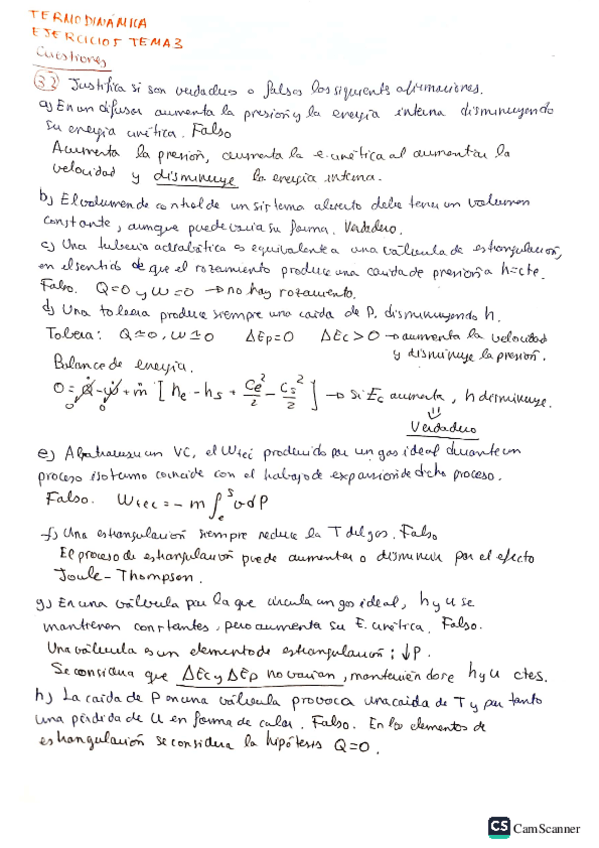 TERMODINÁMICA
EJERCICIOS TEMA 3
Cuestiones
Justifica si son verdaderas o falsas las siguientes afirmaciones.
a) En un difusor aumenta la presión y la energía interna disminuyendo
su energía cinética. Falso
Aumenta la presión, aumenta la e. cinética al aumentar la
velocidad y disminuye la energía interna.
b) El volumen de control de un sistema abierto debe tener un volumen
constante, aunque puede varia su forma. Verdadero.
c) Una tuberia adiabática es equivalente a una válvula de estrangulación,
en el sentido de que el rozamiento produce una caida de presión a h=cte.
Falso. Q=0 y W=0 → no hay rozamiento.
d) Una tobera produce siempre una caida de P, disminuyendo h.
Tobera: Q≃0, W≃0 ΔEp=0 ΔEc>0 → aumenta la velocidad
y disminuye la presión.
Balance de energía.
0 = Q̇ - Ẇ + ṁ [ he - hs + Ce²/2 - Cs²/2 ] → si Ec aumenta, h disminuye.
0 0
⇓
Verdadero
e) un VC, el Wtec producido por un gas ideal durante un
proceso isotermo coincide con el trabajo de expansión de dicho proceso.
Falso. Wtec = - m ∫ₑˢ v dP
f) Una estrangulación siempre reduce la T del gas. Falso
El proceso de estrangulación puede aumentar o disminuir por el efecto
Joule-Thompson.
g) En una válvula por la que circula un gas ideal, h y u se
mantienen constantes, pero aumenta su E. cinética. Falso.
Una válvula es un elemento de estrangulación: ↓P.
Se considera que ΔEc y ΔEp no varian, manteniendose h y u ctes.
h) La caida de P en una válvula provoca una caida de T y por tanto
una pérdida de U en forma de calor. Falso. En los elementos de
estrangulación se considera la hipótesis Q=0.
CS CamScanner